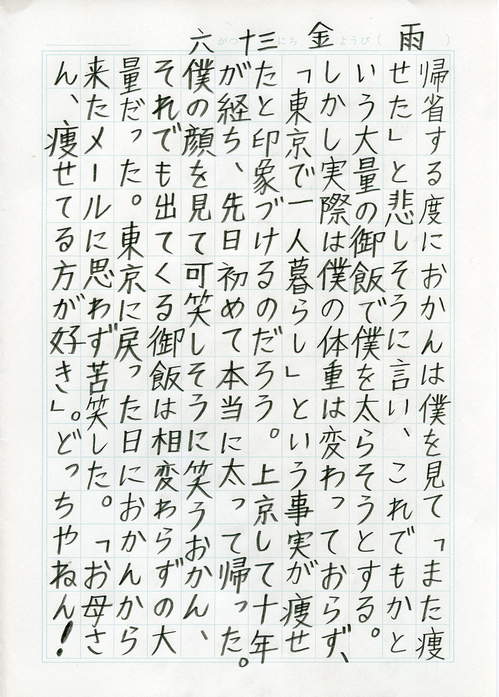 六がつ十三にち 金ようび( 雨 )
帰省する度におかんは僕を見て「また痩
せた」と悲しそうに言い、これでもかと
いう大量の御飯で僕を太らそうとする。
しかし実際は僕の体重は変わっておらず、
「東京で一人暮らし」という事実が痩せ
たと印象づけるのだろう。上京して十年
が経ち、先日初めて本当に太って帰った。
僕の顔を見て可笑しそうに笑うおかん、
それでも出てくる御飯は相変わらずの大
量だった。東京に戻った日におかんから
来たメールに思わず苦笑した。「お母さ
ん、痩せてる方が好き」。どっちやねん!